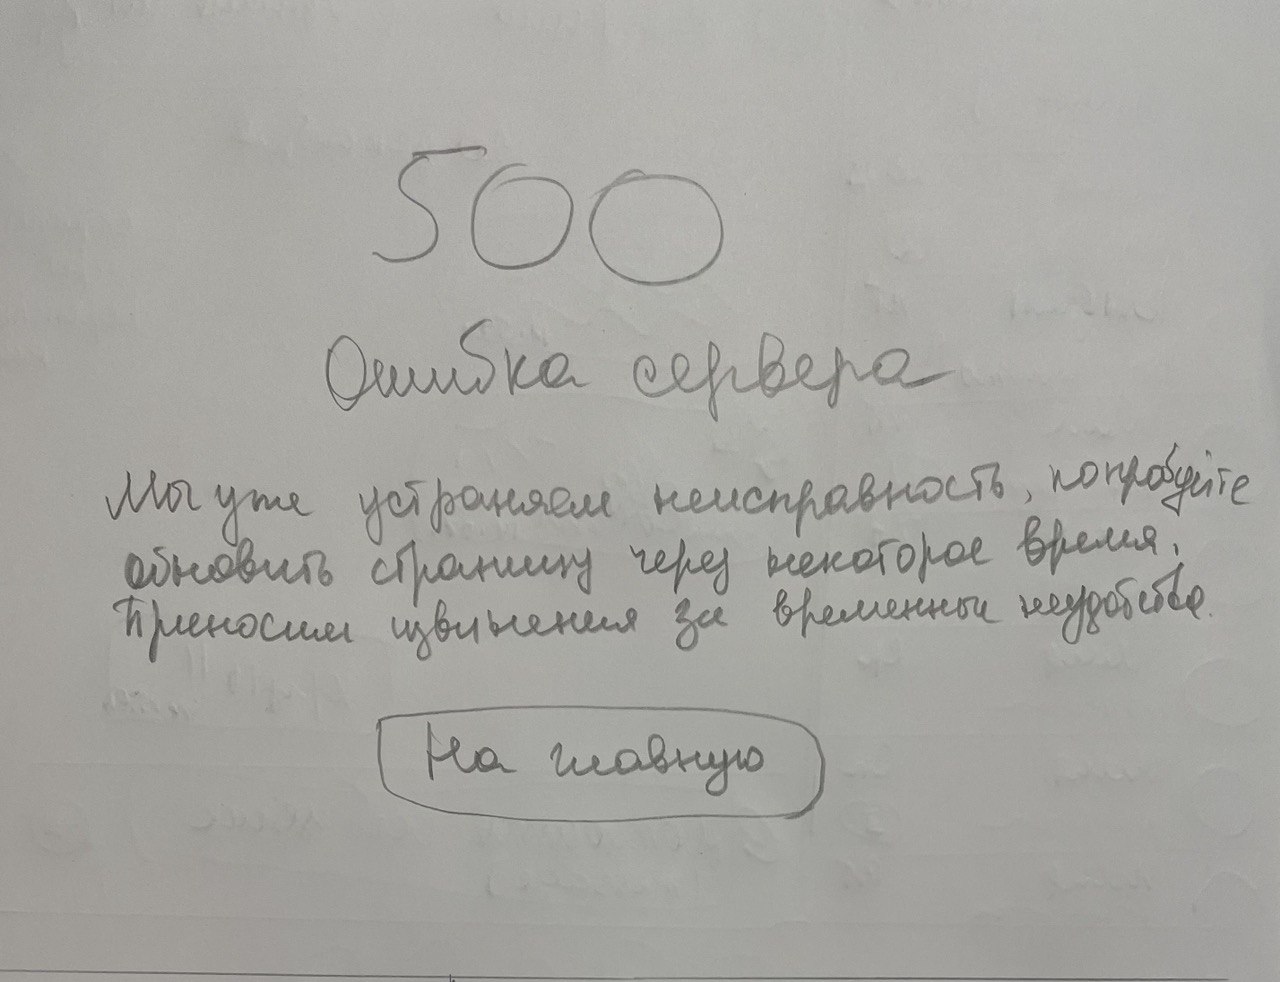 500
Ошибка сервера
Мы уже устраняем неисправность, попробуйте
обновить страницу через некоторое время.
Приносим извинения за временные неудобства.
На главную